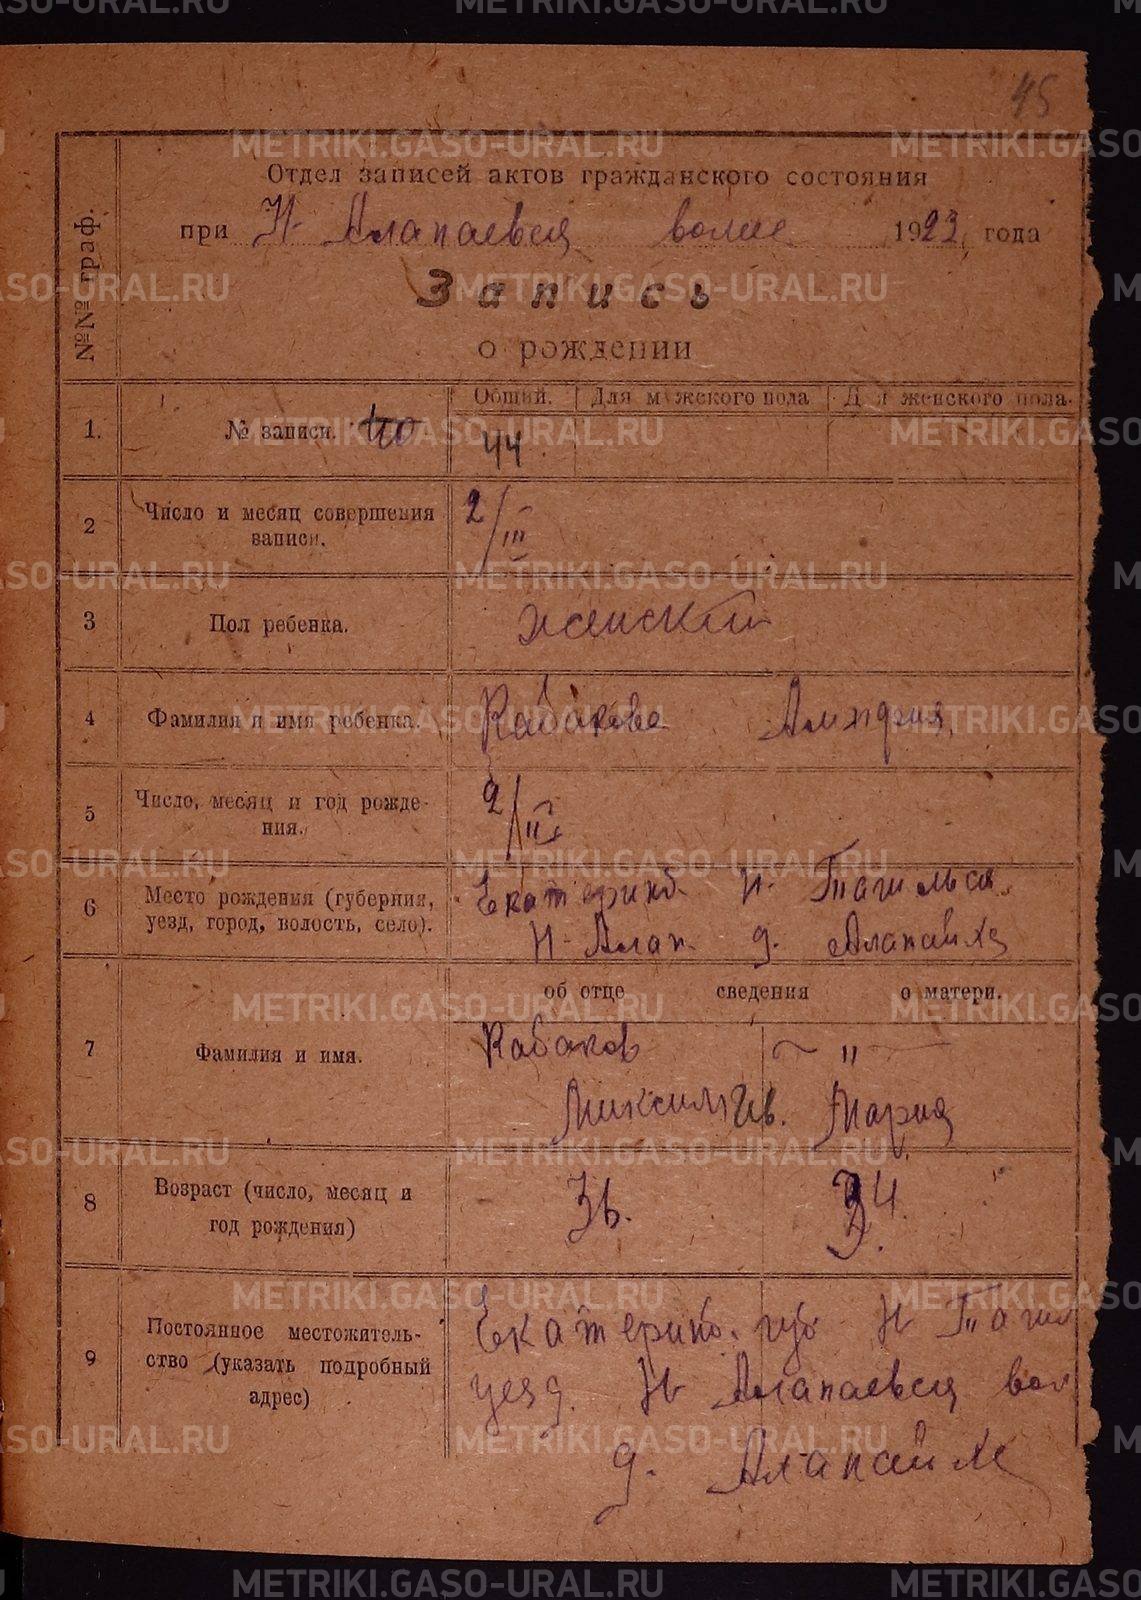 45
Отдел записей актов гражданского состояния
при Н- Алапаевск волис 1923 года
Запись
о рождении
№№ граф.
Общий. Для мужского пола Для женского пола.
1. № записи. 40 44
2 Число и месяц совершения записи. 2/III
3 Пол ребенка. женский
4 Фамилия и имя ребенка. Кабакова
5 Число, месяц и год рождения. 2/III
6 Место рождения (губерния, уезд, город, волость, село). Екатеринб. Н- Тагильск
Н-Алап. д. Алапаиха
об отце сведения о матери.
7 Фамилия и имя. Кабаков "
Максим Ив. Мария
8 Возраст (число, месяц и год рождения) 36. 34.
9 Постоянное местожительство (указать подробный адрес) Екатеринб. губ Н Тагил
уезд. Н Алапаевск вол
д. Алапаиха
METRIKI.GASO-URAL.RU